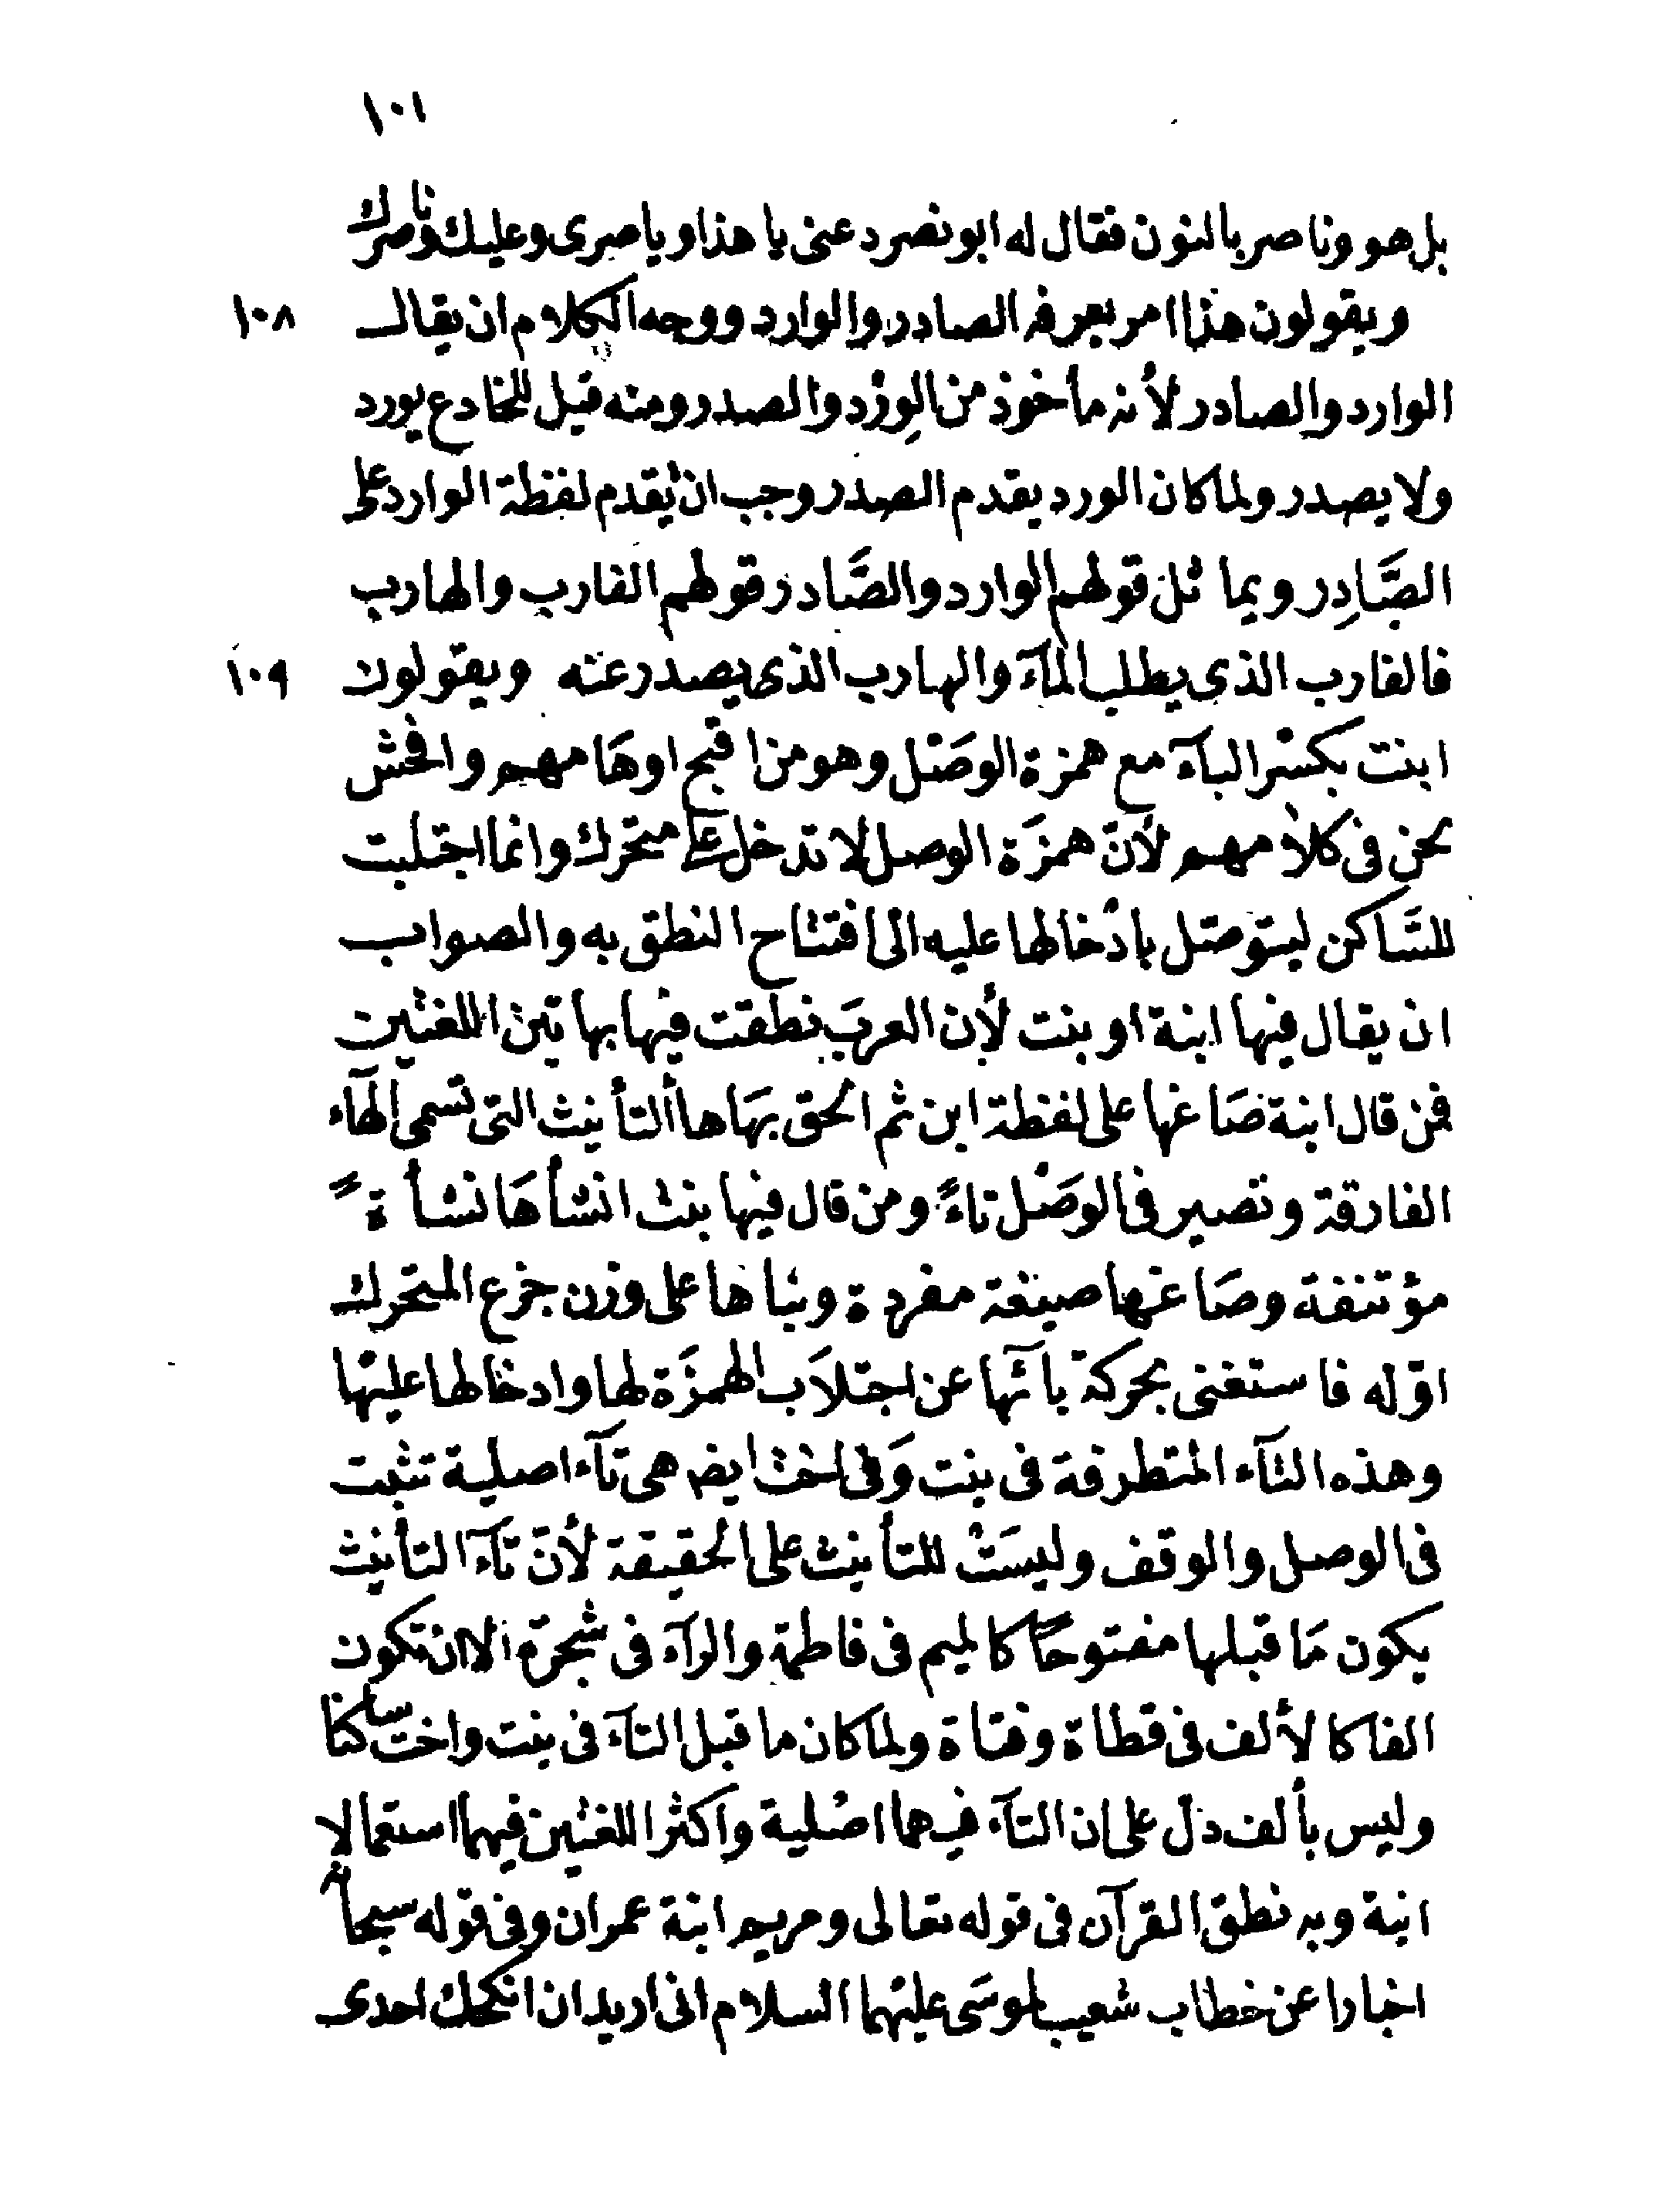 ١٠١
بل هو وناصر بالنون فقال له ابو نصر دعنى يا هذا وياصرى وعليك وناصرك
ويقولون هذا امر يعرفه الصادر والوارد ووجه الكلام ان يقال ١٠٨
الوارد والصادر لأنه مأخوذ من الوِرْد والصدر ومنه قيل للخادع يورد
ولا يصدر ولما كان الورد يقدم الصدر وجب ان تُقدم لفظة الوارد على
الصَّادِر ويماثل قولهم الوارد والصَّادر قولهم القارب والهارب
فالقارب الذى يطلب المآء والهارب الذى يصدر عنه ويقولون ١٠٩
ابنت بكسْر البآء مع همزة الوصْل وهو من اقبح اوهَامهم وافحش
لحن فى كلامهم لأنّ همزَة الوصل لا تدخل على متحرك وانما اجتلبت
للسَّاكن ليتوصّل بادْخالها عليه الى افتتاح النطق به والصواب
ان يقال فيها ابنة او بنت لأن العربَ نطقت فيها بهاتين اللغتين
فمن قال ابنة صَاغها على لفظة ابن ثم الحق بهَا هاأ التأنيث التى تسمى الهآء
الفارقة وتصير فى الوصْل تاءً ومن قال فيها بنت انشأهَا نشأةً
مؤتنفة وصَاغها صيغة مفردة وبناها على وزن جذع المتحرك
اوّله فاستغنى بحركة بآئها عن اجتلاَب الهمزَة لها وادخالها عليْها
وهذه التآء المتطرفة فى بنت وَفى اخت ايضا هى تآء اصلية تثبت
فى الوصل والوقف وليسَتْ للتأنيث على الحقيقة لأنّ تآء التأنيث
يكون مَا قبلها مفتوحًا كالميم فى فاطمة والرآء فى شجرة الا ان تكون
الفا كالألف فى قطاة وفتاة ولما كان ما قبل التآء فى بنت واخت ساكنا
وليس بألف دلّ على ان التآء فيهما اصْلية واكثر اللغتين فيهما استعمالا
ابنة وبه نطق القرآن فى قوله تعالى ومريم ابنة عمران وفى قوله سبحانه
اخبارا عن خطاب شعيب لموسَى عليْهما السلام انى اريد ان انكحك احدى